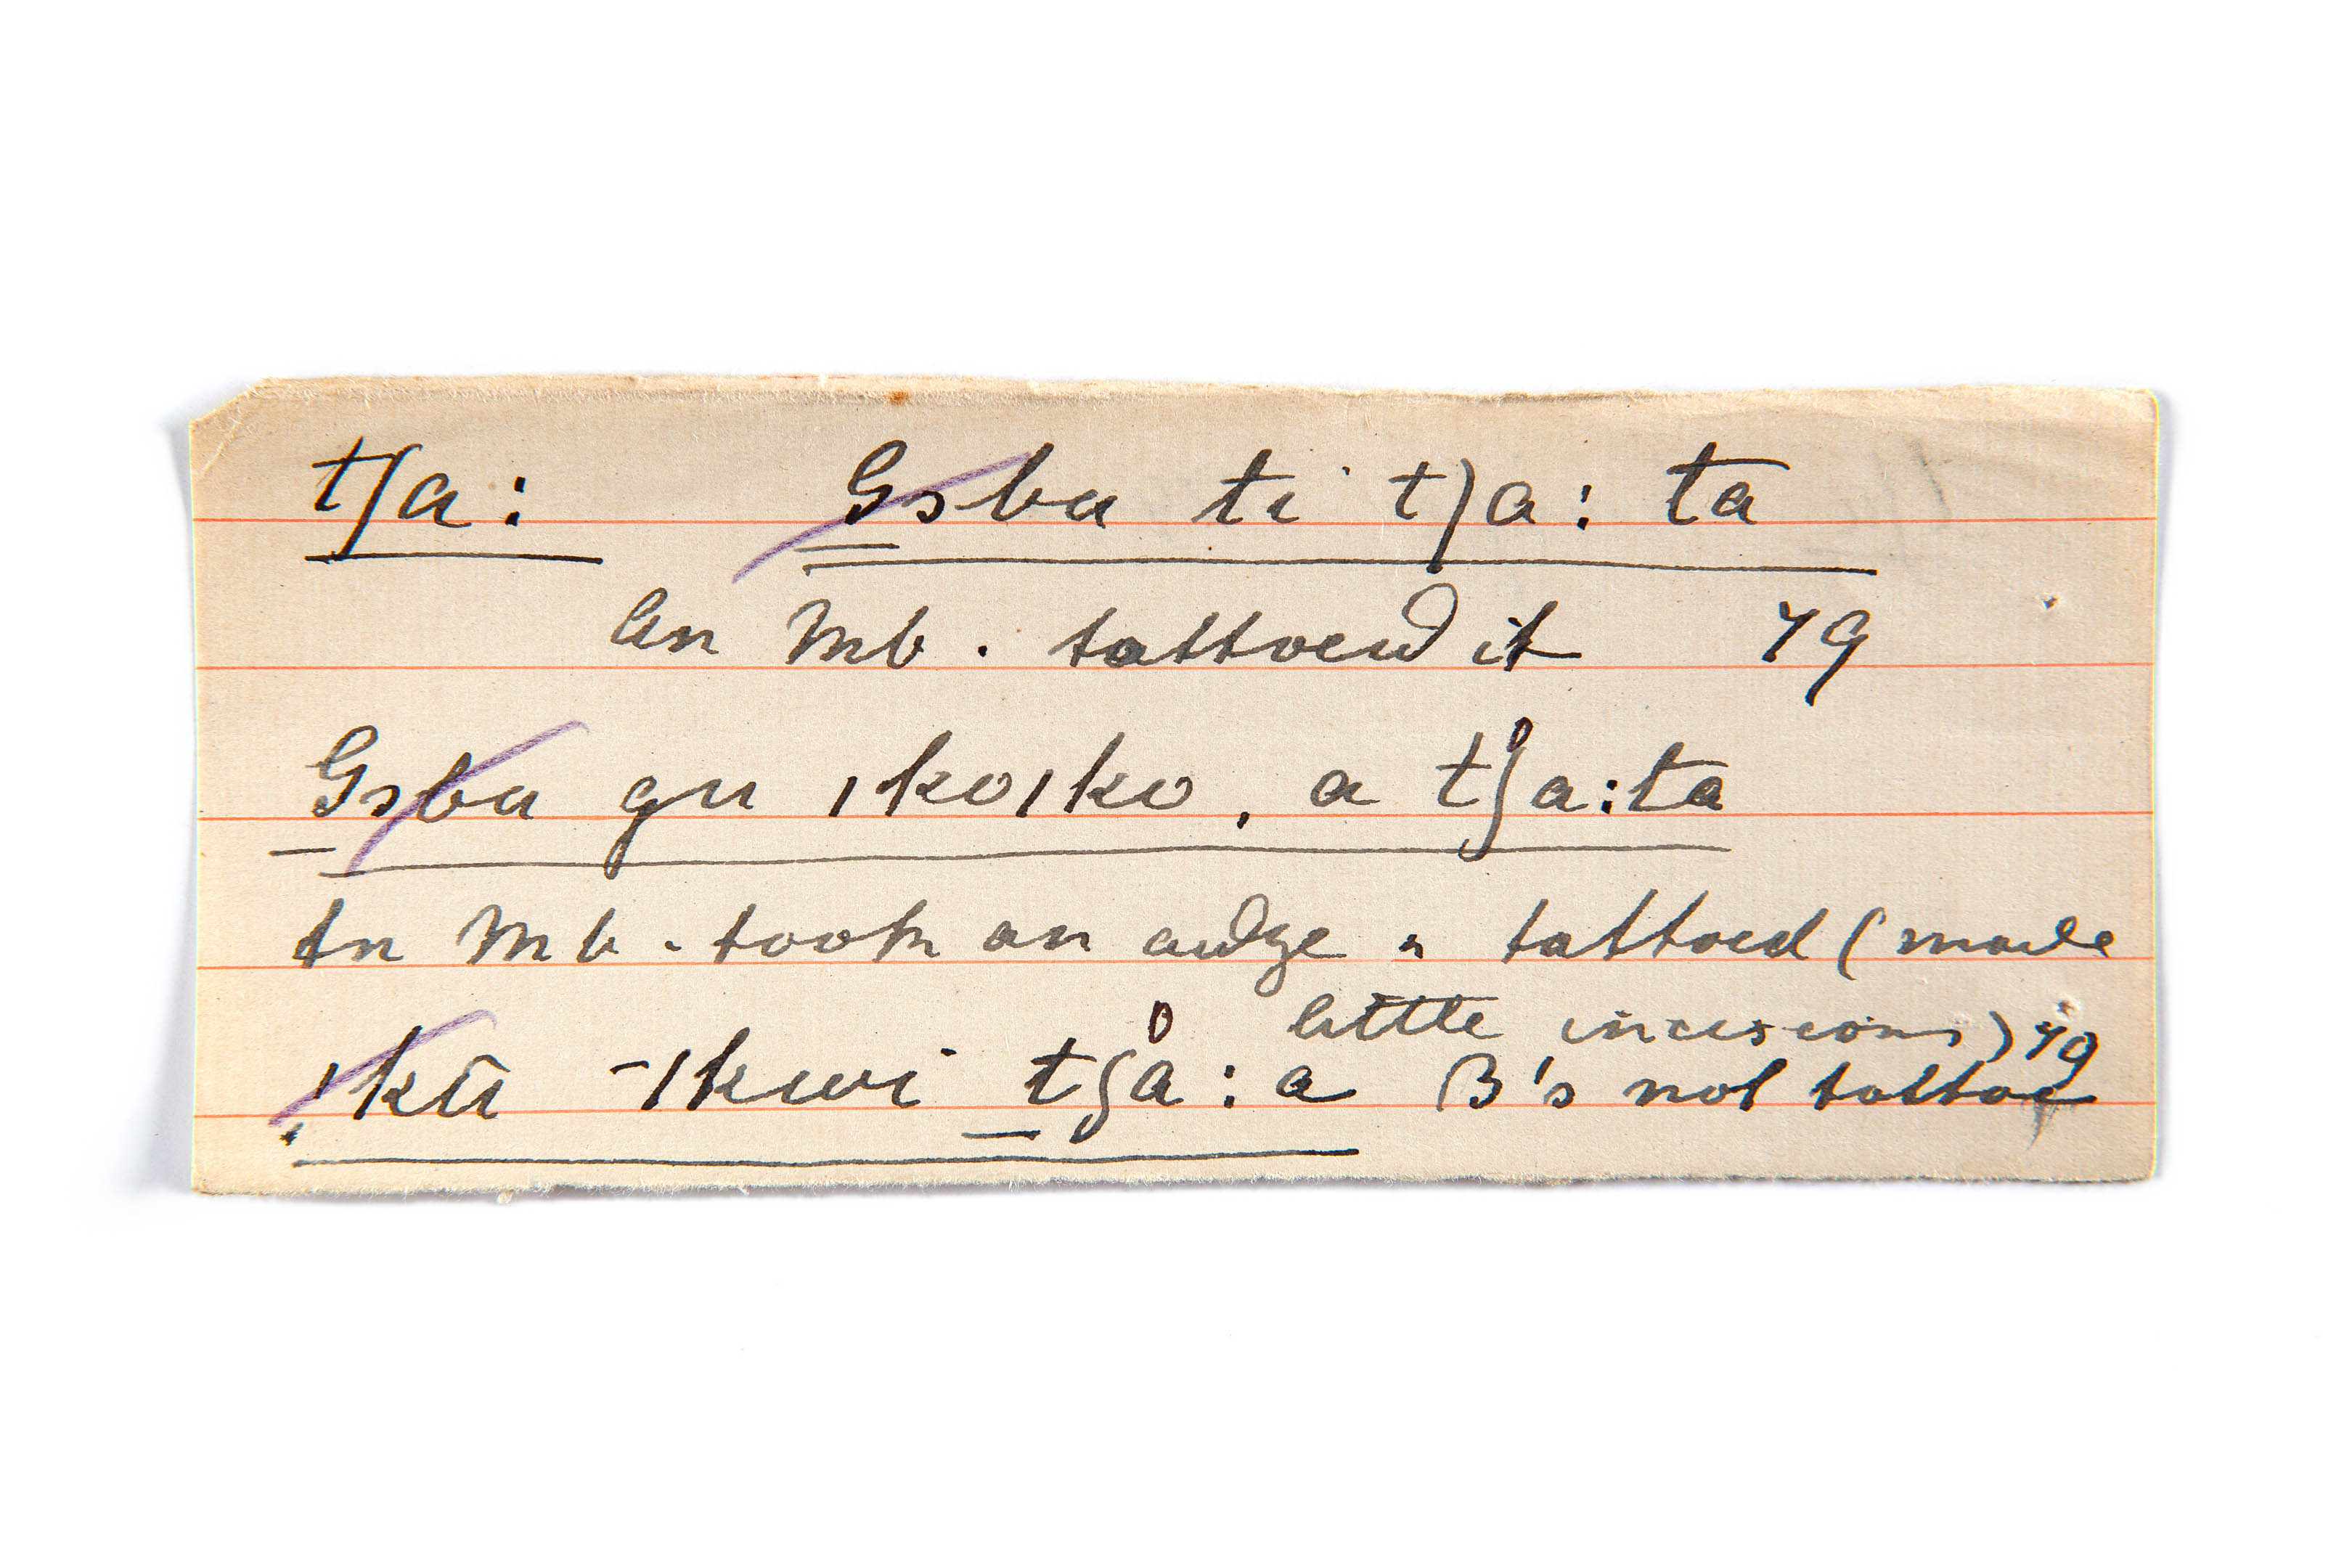 tʃa: Gɔba ti tʃa: ta
An Mb. tattoed it 79
Gɔba gu ɪkoɪko, a tʃa:ta
An Mb. took an adze & tattoed (made
little incisions) 79
ɪkū -ɪkwi tʃa:a B's not tattoe